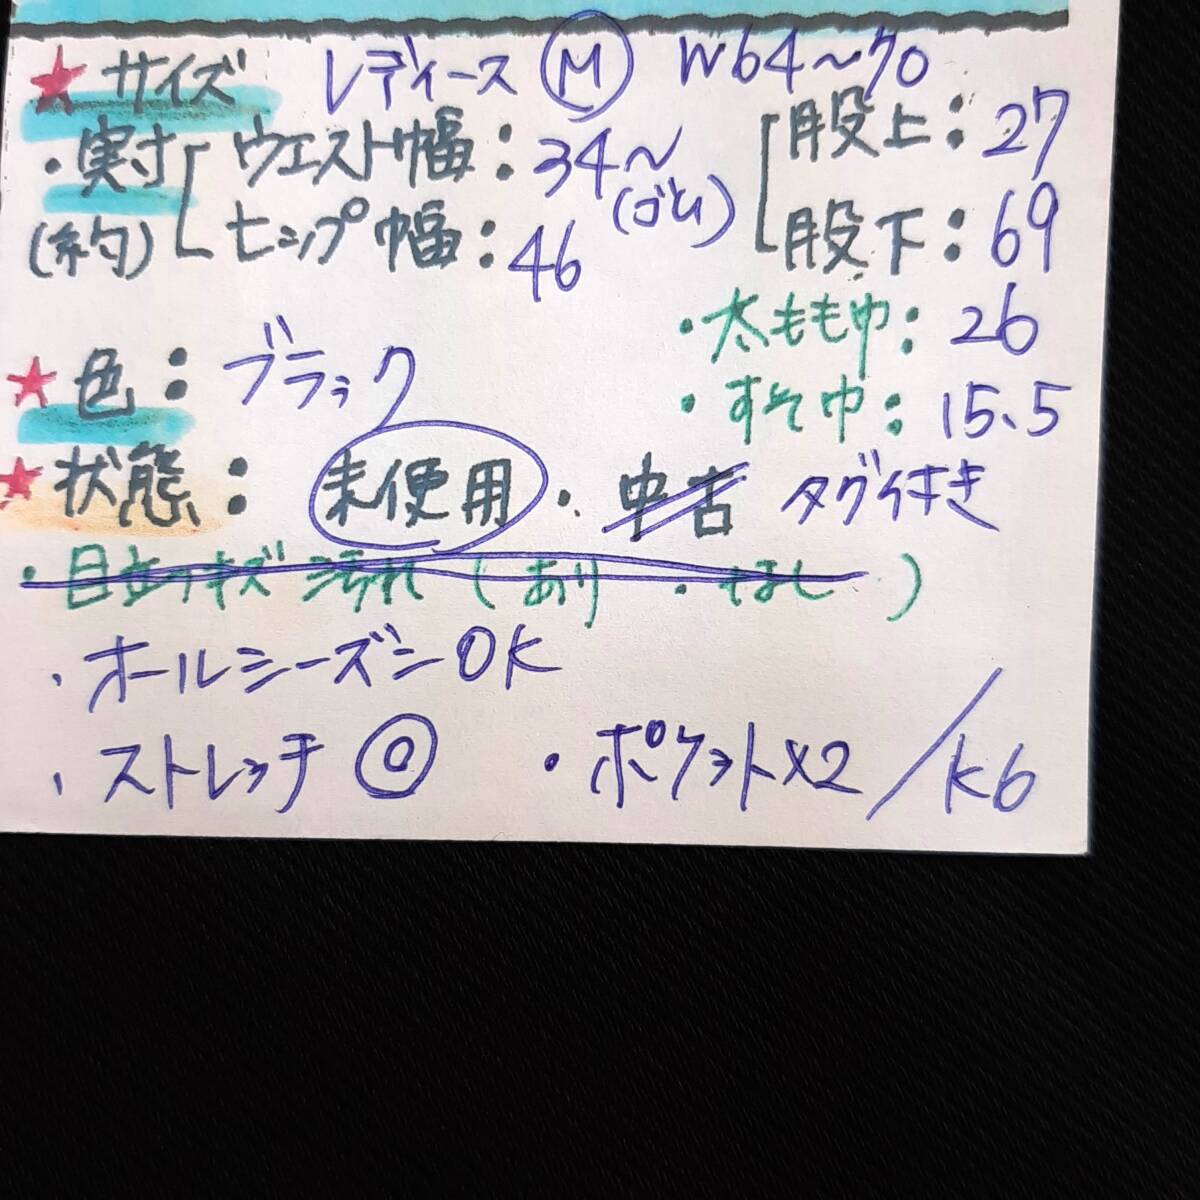 ★サイズ レディース Ⓜ W64〜70
・実寸 ウエスト幅：34〜(ゴム) 股上：27
(約) ヒップ幅：46 股下：69
・太もも巾：26
★色：ブラック
・すそ巾：15.5
★状態：未使用・中古 タグ付き
・目立つキズ汚れ(あり・なし)
・オールシーズンOK
・ストレッチ◎ ・ポケット×2／K6